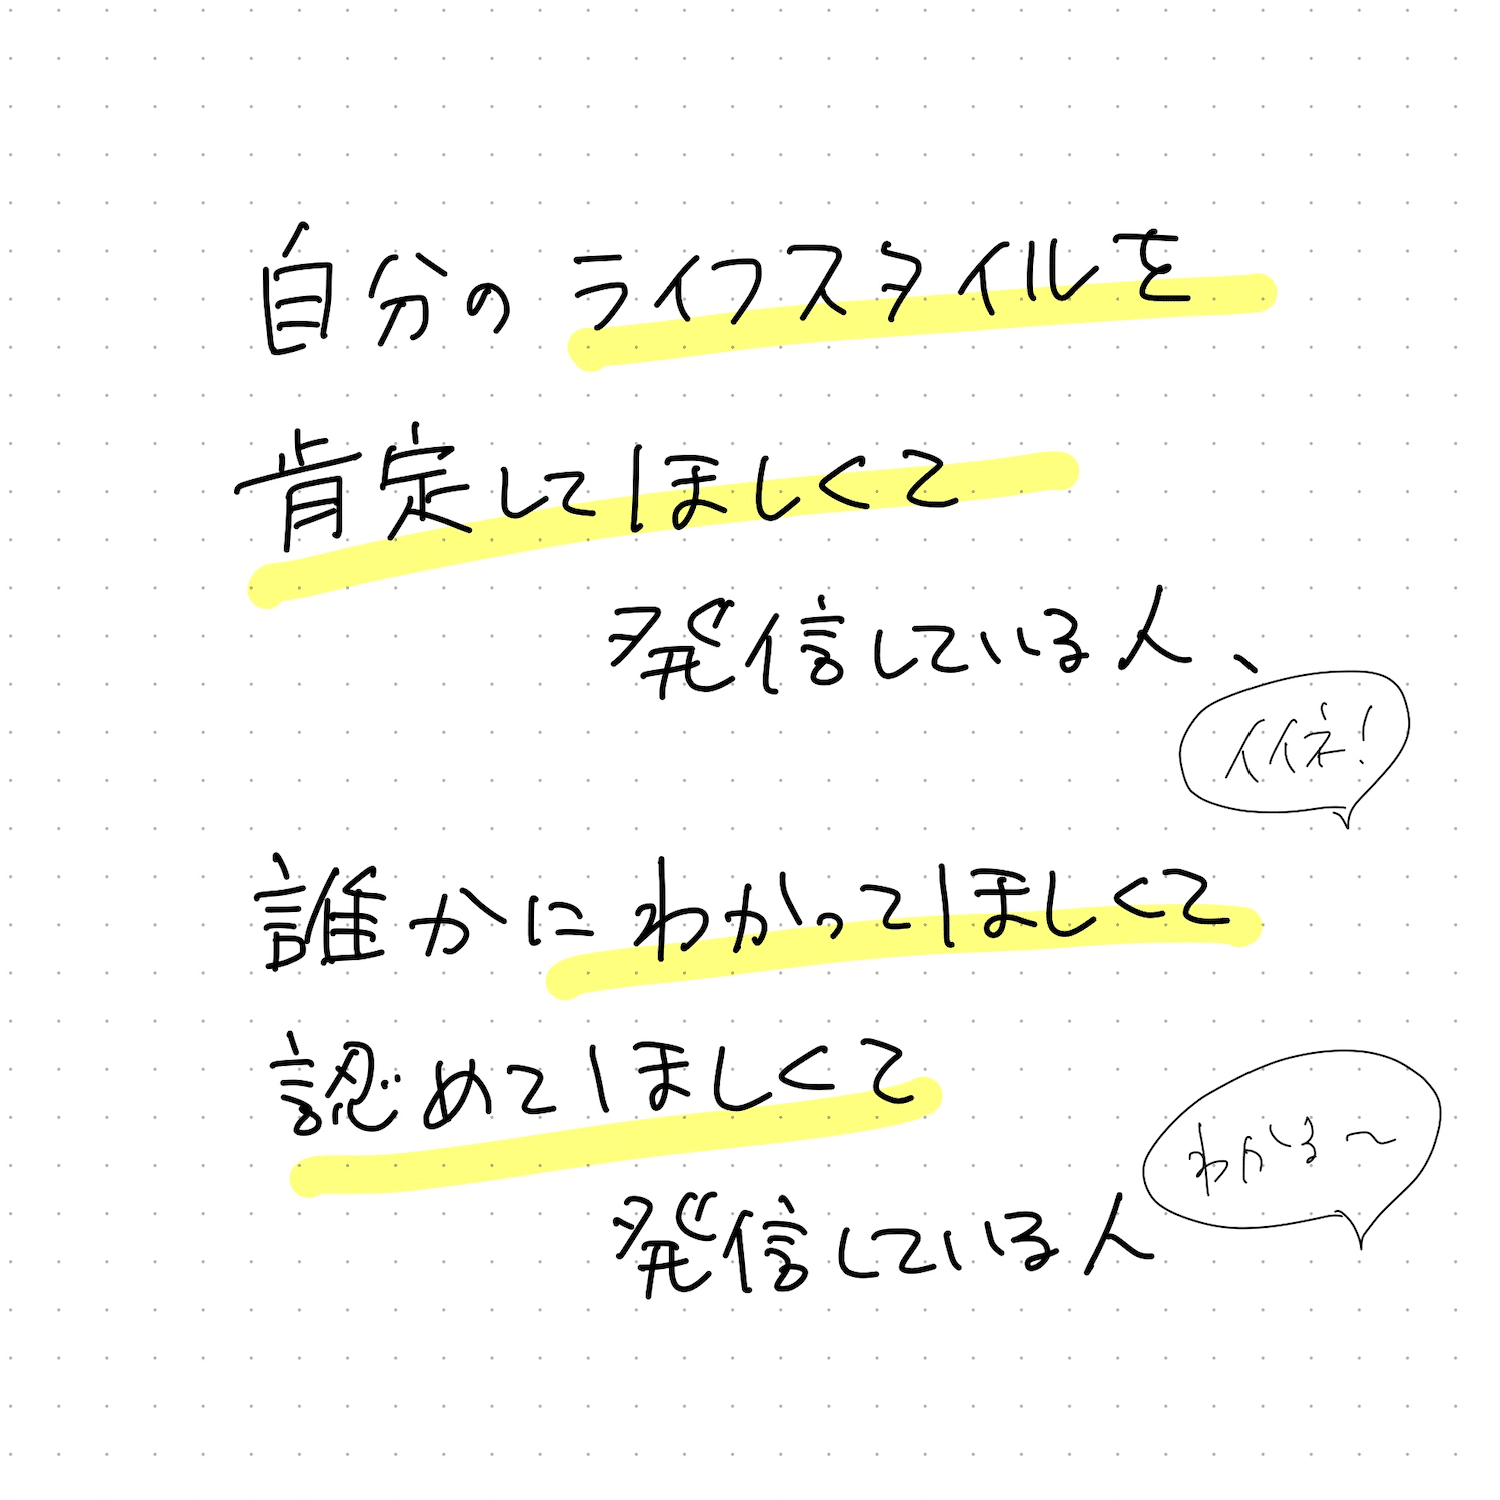 自分のライフスタイルを
肯定してほしくて
発信している人、
イイネ!
誰かにわかってほしくて
認めてほしくて
わかる〜
発信している人